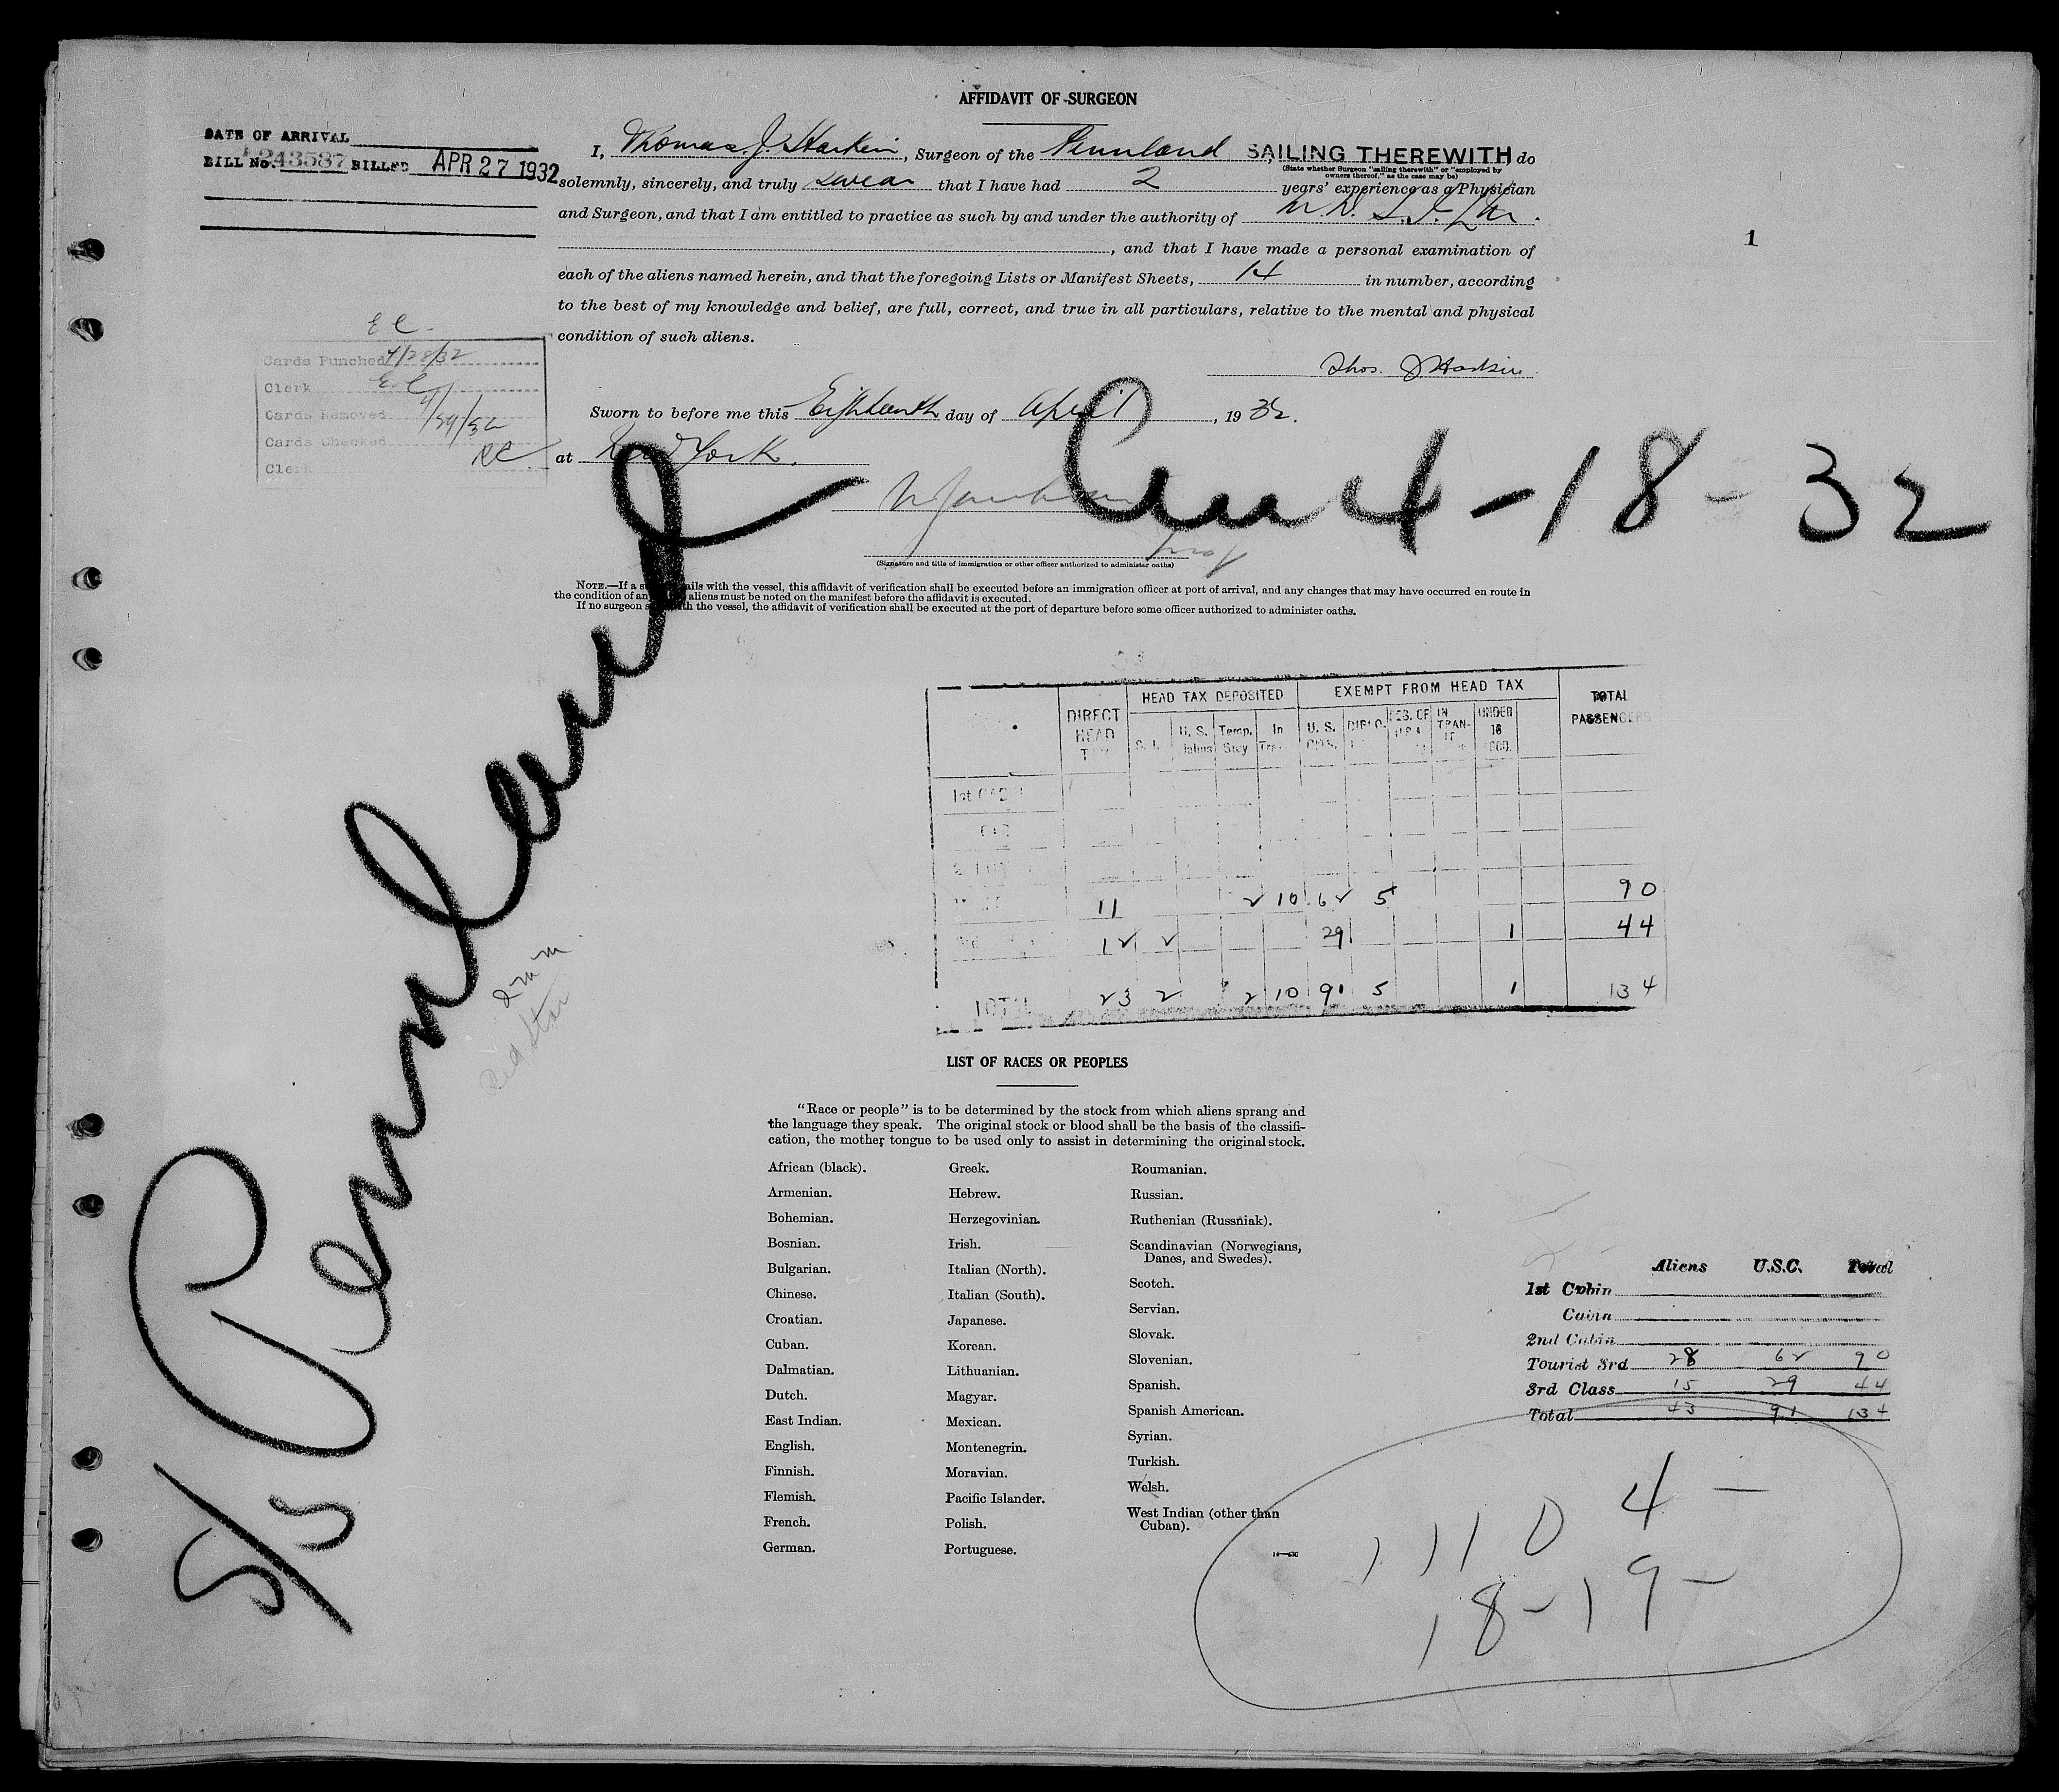 AFFIDAVIT OF SURGEON
DATE OF ARRIVAL
BILL No. 243587 BILLED APR 27 1932
I, Thomas J. Harkin, Surgeon of the Pennland SAILING THEREWITH do
(State whether Surgeon "sailing therewith" or "employed by
owners thereof," as the case may be)
solemnly, sincerely, and truly swear that I have had 2 years' experience as a Physician
and Surgeon, and that I am entitled to practice as such by and under the authority of
, and that I have made a personal examination of
each of the aliens named herein, and that the foregoing Lists or Manifest Sheets, 14 in number, according
to the best of my knowledge and belief, are full, correct, and true in all particulars, relative to the mental and physical
condition of such aliens.
1
Thos. J Harkin
Cards Punched 4/28/32
Clerk
Cards Removed 4/29/32
Cards Checked
Clerk RC
Sworn to before me this Eighteenth day of April, 1932.
at New York.
Arr 4-18-32
(Signature and title of immigration or other officer authorized to administer oaths)
NOTE.—If a ails with the vessel, this affidavit of verification shall be executed before an immigration officer at port of arrival, and any changes that may have occurred en route in
the condition of any aliens must be noted on the manifest before the affidavit is executed.
If no surgeon s th the vessel, the affidavit of verification shall be executed at the port of departure before some officer authorized to administer oaths.
S/S Pennland
Red Star
DIRECT HEAD TAX HEAD TAX DEPOSITED EXEMPT FROM HEAD TAX TOTAL PASSENGERS
U. S. Temp. Stay In U. S. DIPLO. IN TRAN- UNDER 16
1st
11 2 10 62 5 90
12 2 29 1 44
TOTAL 23 2 2 10 91 5 1 134
LIST OF RACES OR PEOPLES
"Race or people" is to be determined by the stock from which aliens sprang and
the language they speak. The original stock or blood shall be the basis of the classifi-
cation, the mother tongue to be used only to assist in determining the original stock.
African (black).
Armenian.
Bohemian.
Bosnian.
Bulgarian.
Chinese.
Croatian.
Cuban.
Dalmatian.
Dutch.
East Indian.
English.
Finnish.
Flemish.
French.
German.
Greek.
Hebrew.
Herzegovinian.
Irish.
Italian (North).
Italian (South).
Japanese.
Korean.
Lithuanian.
Magyar.
Mexican.
Montenegrin.
Moravian.
Pacific Islander.
Polish.
Portuguese.
Roumanian.
Russian.
Ruthenian (Russniak).
Scandinavian (Norwegians,
Danes, and Swedes).
Scotch.
Servian.
Slovak.
Slovenian.
Spanish.
Spanish American.
Syrian.
Turkish.
Welsh.
West Indian (other than
Cuban).
Aliens U.S.C. Total
1st Cabin
Cabin
2nd Cabin
Tourist 3rd 28 62 90
3rd Class 15 29 44
Total 43 91 134
1110 4-
18-19-